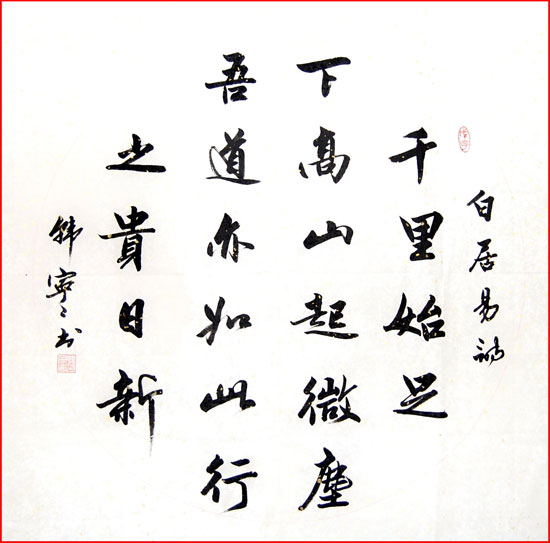 白居易詩
千里始足
下髙山起微塵
吾道亦如此行
之貴日新
韩寧々书